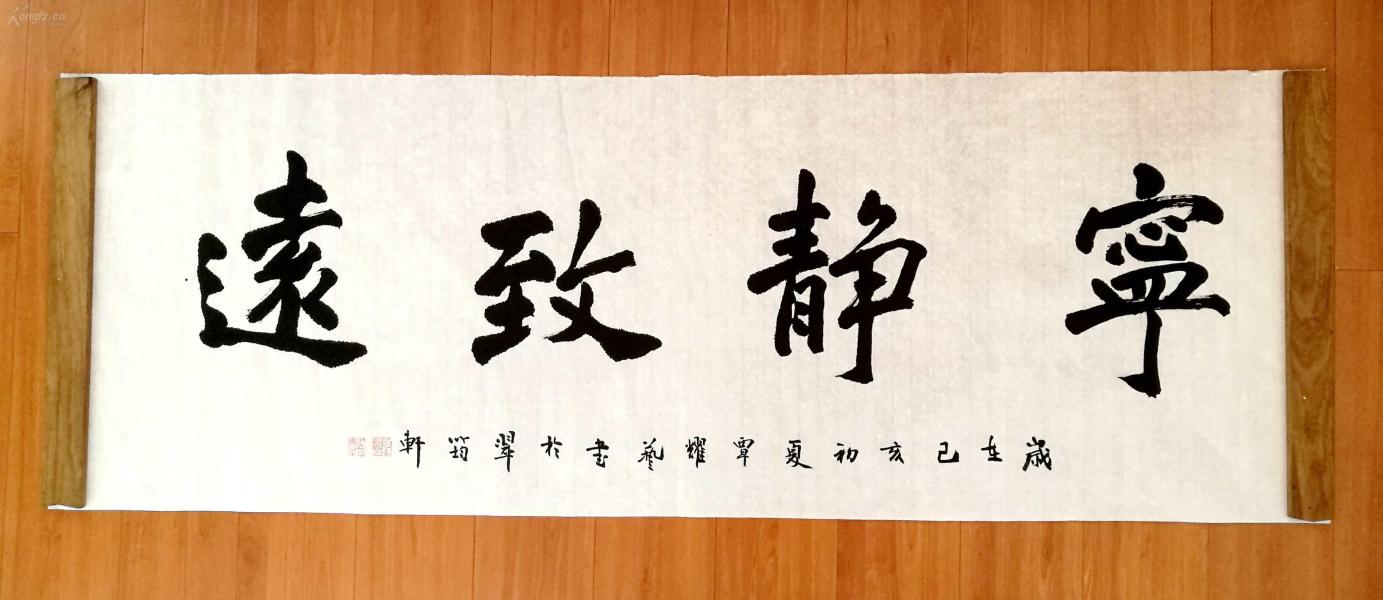 寧静致遠
歲在己亥初夏覃耀藝書於翠筠軒